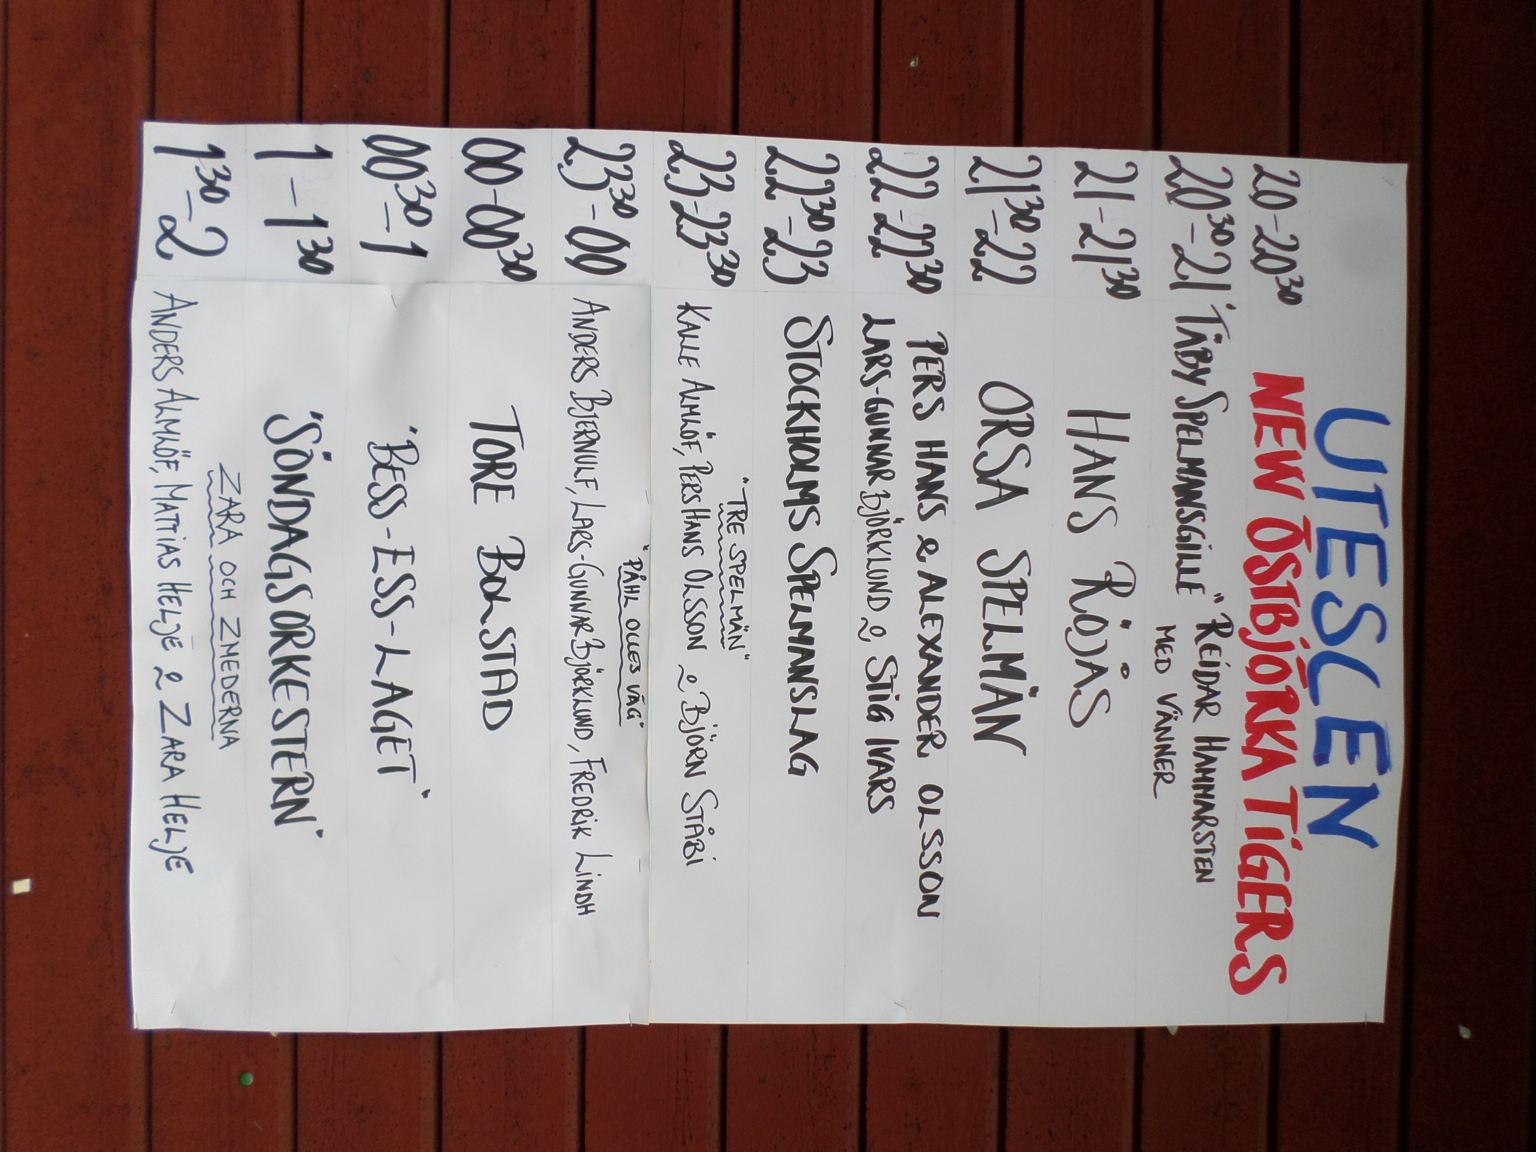 UTESCEN
20-20³⁰ NEW ÖSTBJÖRKA TIGERS
20³⁰-21 "TÄBY SPELMANSGILLE" REIDAR HAMMARSTEN
MED VÄNNER
21-21³⁰ HANS RÖJÅS
21³⁰-22 ORSA SPELMÄN
22-22³⁰ PERS HANS & ALEXANDER OLSSON
LARS-GUNNAR BJÖRKLUND & STIG IVARS
22³⁰-23 STOCKHOLMS SPELMANSLAG
"TRE SPELMÄN"
23-23³⁰ KALLE ALMLÖF, PERS HANS OLSSON & BJÖRN STÅBI
"PÅHL OLLES VÄG"
23³⁰-00 ANDERS BJERNULF, LARS-GUNNAR BJÖRKLUND, FREDRIK LINDH
00-00³⁰ TORE BOLSTAD
00³⁰-1 "BESS-ESS-LAGET"
1-1³⁰ "SÖNDAGSORKESTERN"
ZARA OCH ZMEDERNA
1³⁰-2 ANDERS ALMLÖF, MATTIAS HELJE & ZARA HELJE